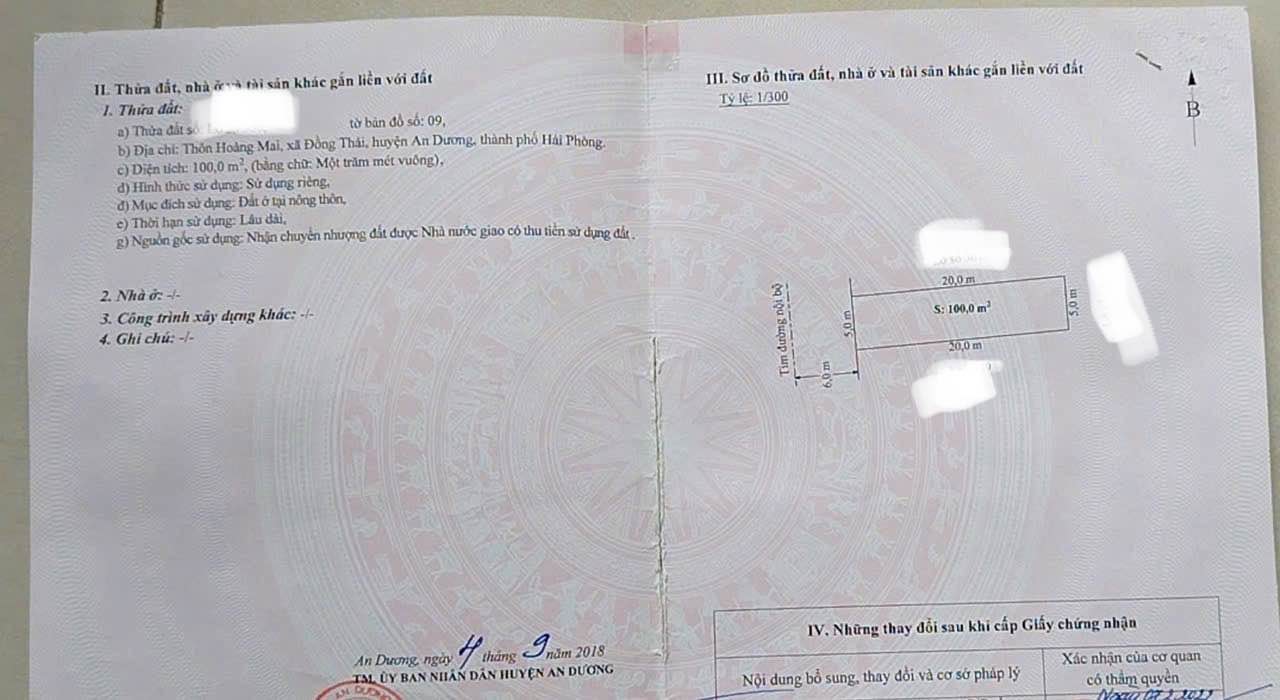 II. Thửa đất, nhà ở và tài sản khác gắn liền với đất
1. Thửa đất:
a) Thửa đất số: tờ bản đồ số: 09,
b) Địa chỉ: Thôn Hoàng Mai, xã Đồng Thái, huyện An Dương, thành phố Hải Phòng,
c) Diện tích: 100,0 m², (bằng chữ: Một trăm mét vuông),
d) Hình thức sử dụng: Sử dụng riêng,
đ) Mục đích sử dụng: Đất ở tại nông thôn,
e) Thời hạn sử dụng: Lâu dài,
g) Nguồn gốc sử dụng: Nhận chuyển nhượng đất được Nhà nước giao có thu tiền sử dụng đất.
2. Nhà ở: -/-
3. Công trình xây dựng khác: -/-
4. Ghi chú: -/-
An Dương, ngày 4 tháng 9 năm 2018
TM. ỦY BAN NHÂN DÂN HUYỆN AN DƯƠNG
AN DƯƠNG
III. Sơ đồ thửa đất, nhà ở và tài sản khác gắn liền với đất
Tỷ lệ: 1/300
B
20,0 m
Tim đường nội bộ
5,0 m
S: 100,0 m²
5,0 m
20,0 m
6,0 m
IV. Những thay đổi sau khi cấp Giấy chứng nhận
Nội dung bổ sung, thay đổi và cơ sở pháp lý
Xác nhận của cơ quan
có thẩm quyền